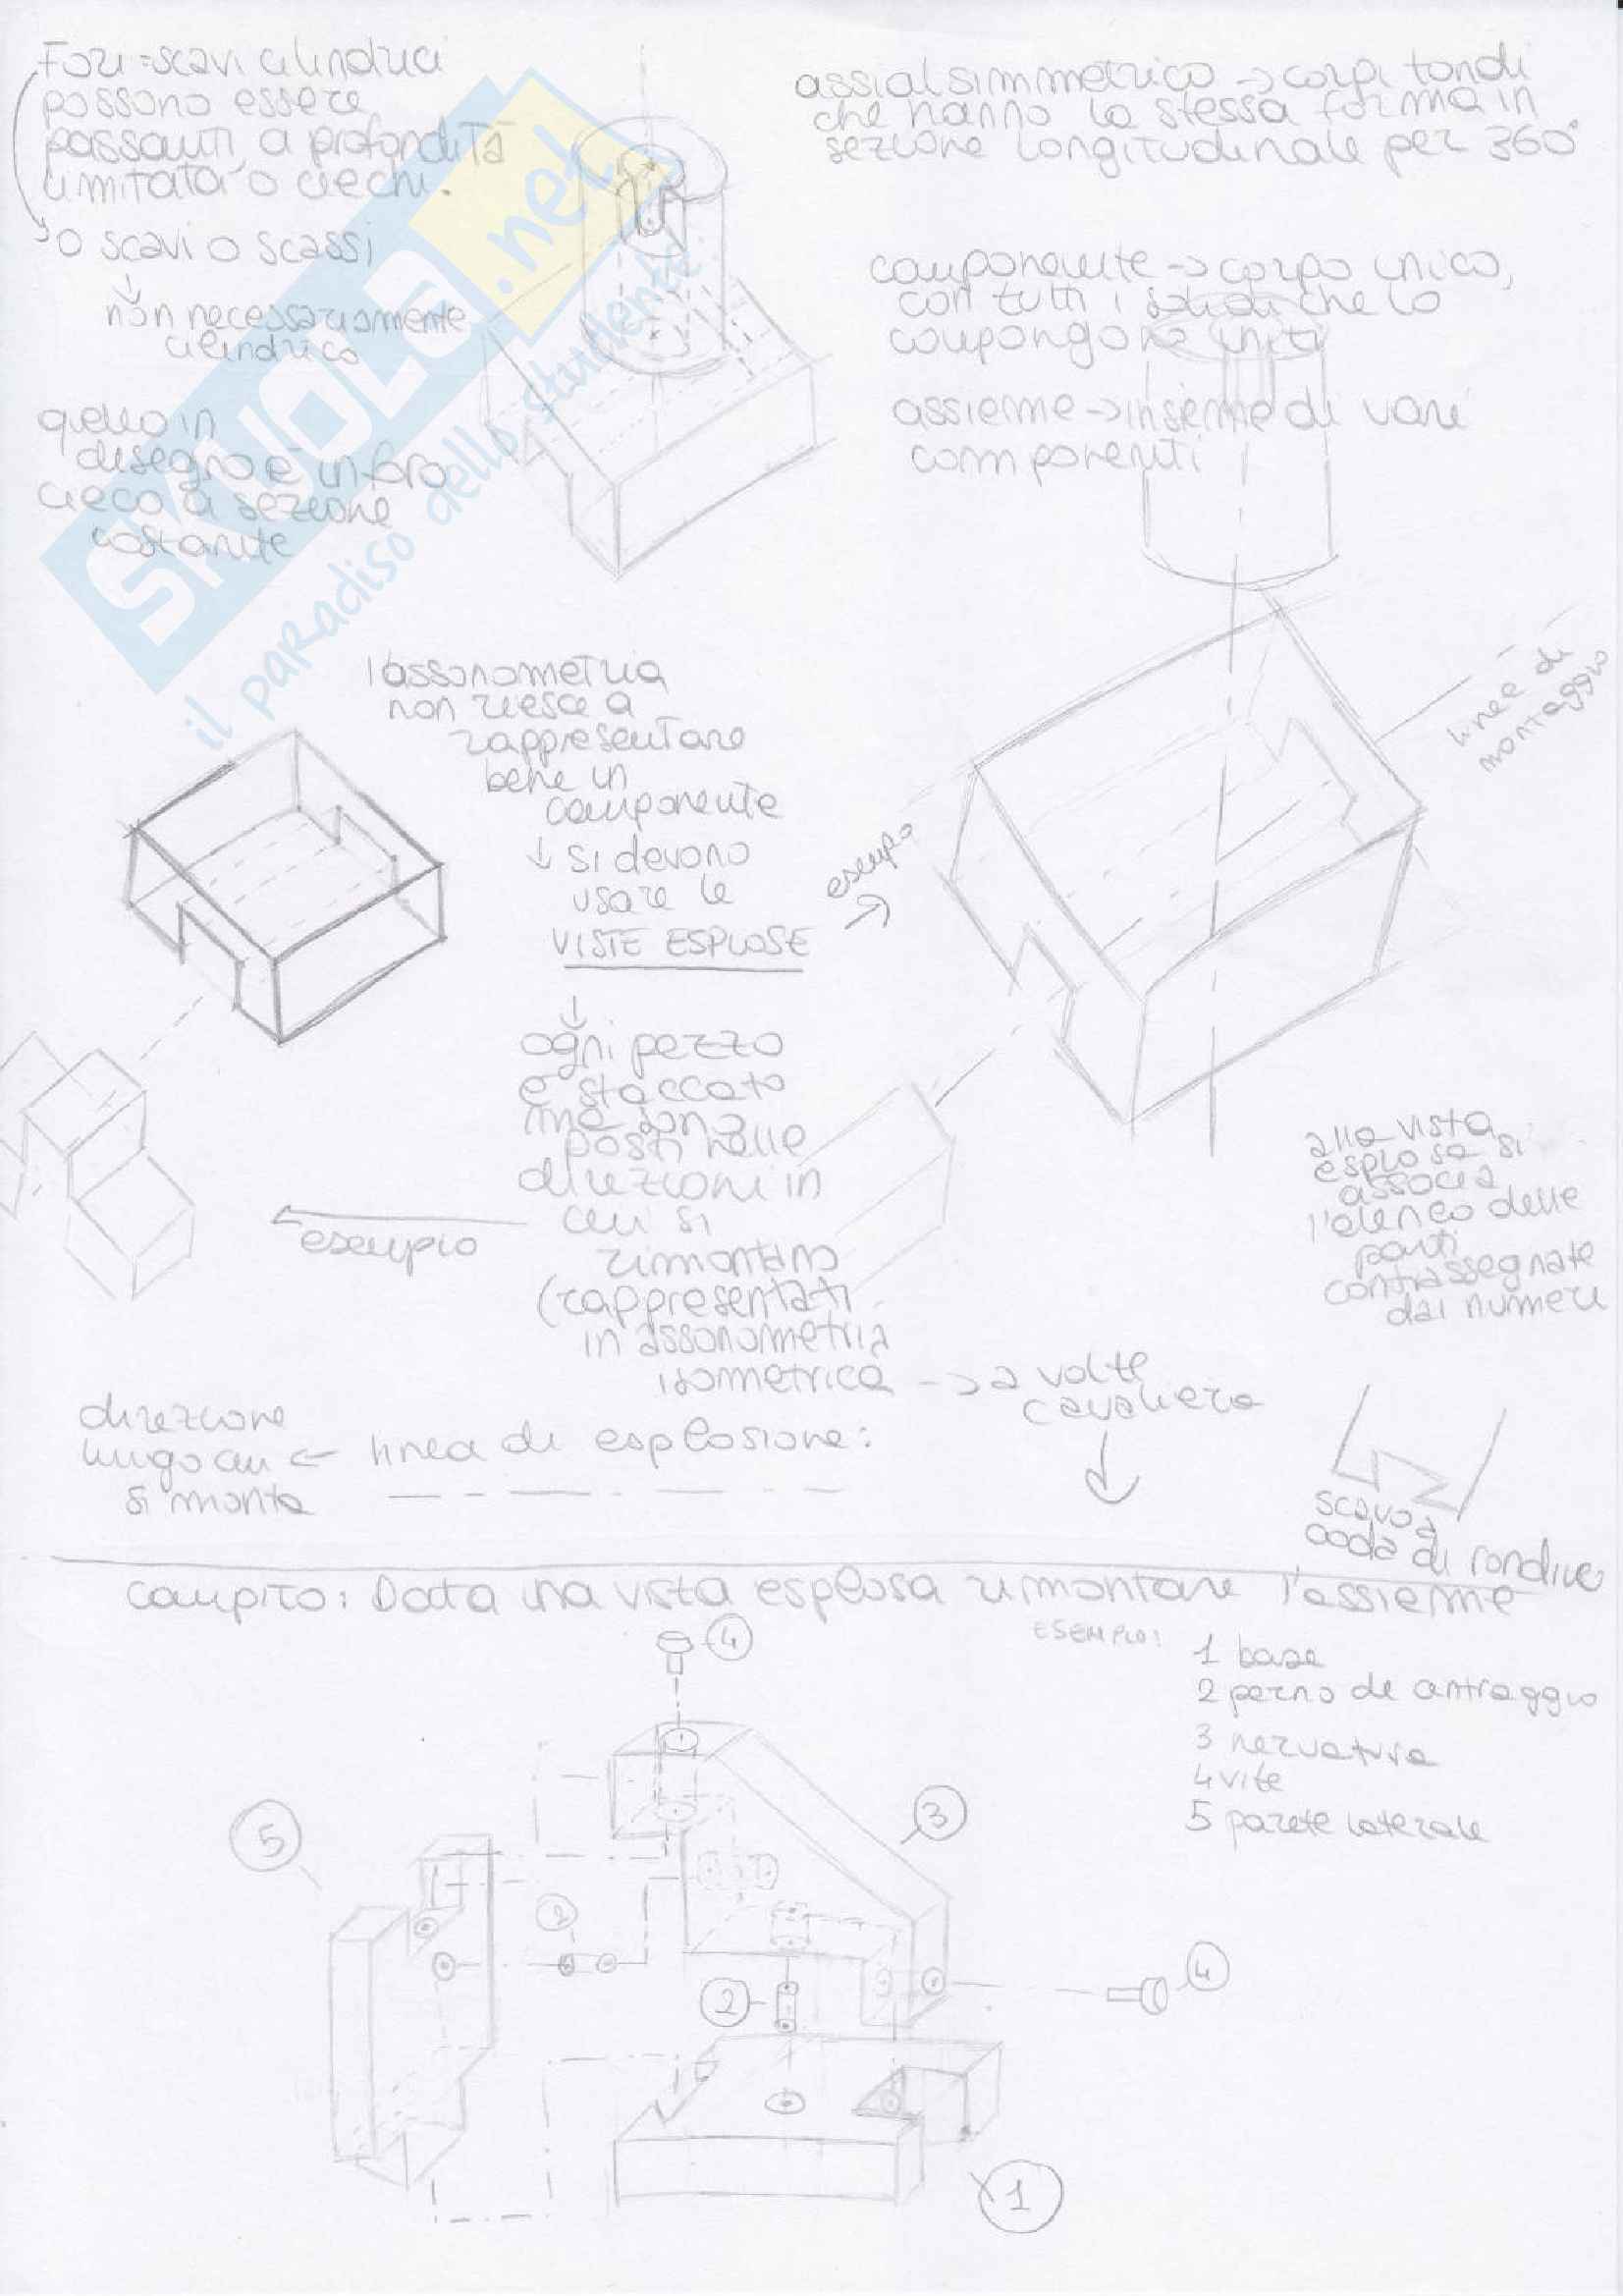 Fori = scavi cilindrici
possono essere
passanti, a profondità
limitata o ciechi.
o scavi o scassi
↓
non necessariamente
cilindrico
quello in
disegno è un foro
cieco a sezione
costante
assialsimmetrico → corpi tondi
che hanno la stessa forma in
sezione longitudinale per 360°
componente → corpo unico,
con tutti i solidi che lo
compongono uniti
assieme → insieme di vari
componenti
SKUOLA.net
il paradiso dello studente
l'assonometria
non riesce a
rappresentare
bene un
componente
↓ si devono
usare le
VISTE ESPLOSE
esempio
→
linee di
montaggio
↓
ogni pezzo
è staccato
ma sono
posti nelle
direzioni in
cui si
rimontano
(rappresentati
in assonometria
isometrica → a volte
cavaliera
esempio
alla vista
esplosa si
associa
l'elenco delle
parti
contrassegnate
dai numeri
direzione
lungo cui ← linea di esplosione:
si monta
scavo a
coda di rondine
compito: Data una vista esplosa rimontare l'assieme
ESEMPIO:
1 base
2 perno di antraggio
3 nervatura
4 vite
5 parete laterale
4
3
5
2
2
4
1